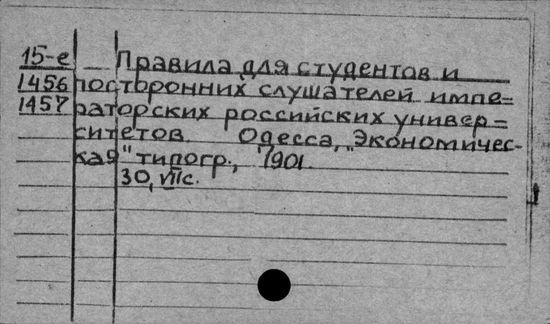 15-е Правила для студентов и
1456 посторонних слушателей импе=
1457 раторских российских универ=
ситетов. Одесса, "Экономичес-
кая" типогр., 1901.
30, VIIс.